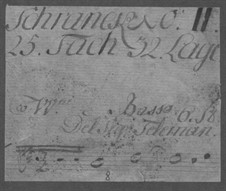 Schranck No. II.
25. Fach 32. Lage
Basso
Del Sig. Teleman.
8